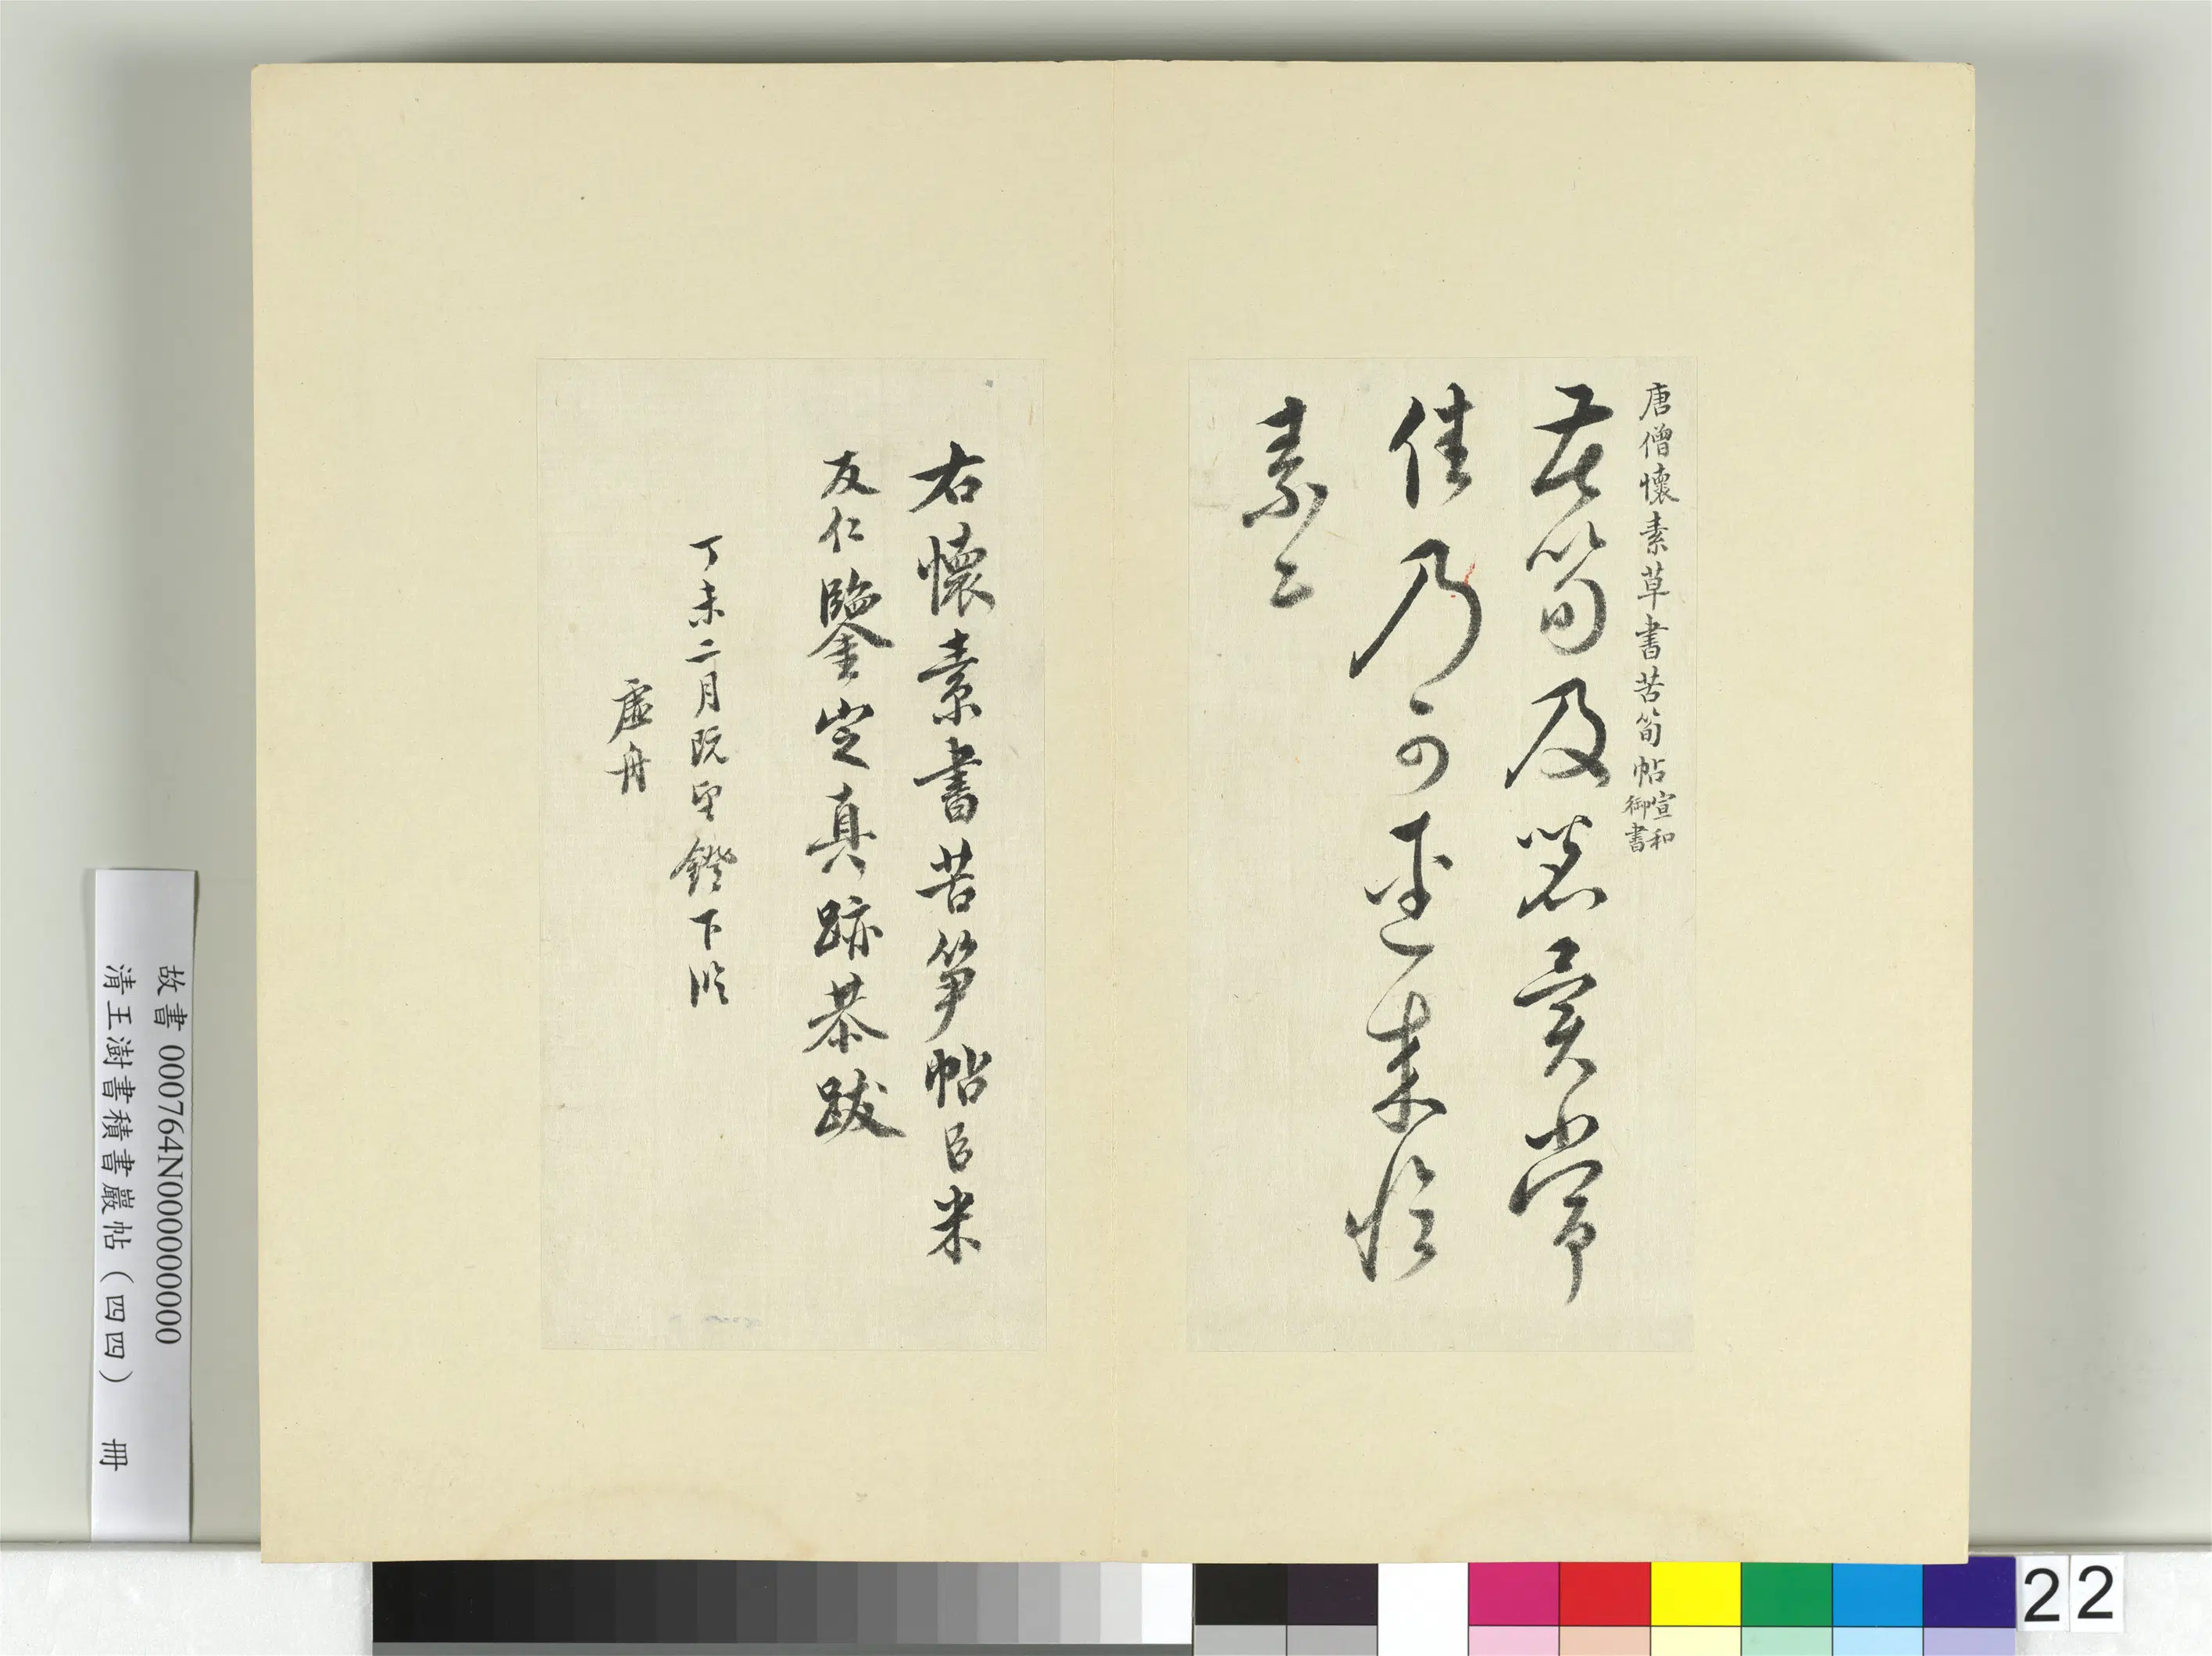 唐僧懷素草書苦筍帖宣和御書
苦筍及茗異常
佳乃可逕來懷
素上
右懷素書苦筍帖臣米
友仁鑒定真跡恭跋
丁未二月既望鐙下臨
虛舟
故書 000764N000000000
清王澍書積書巖帖（四四） 冊
22